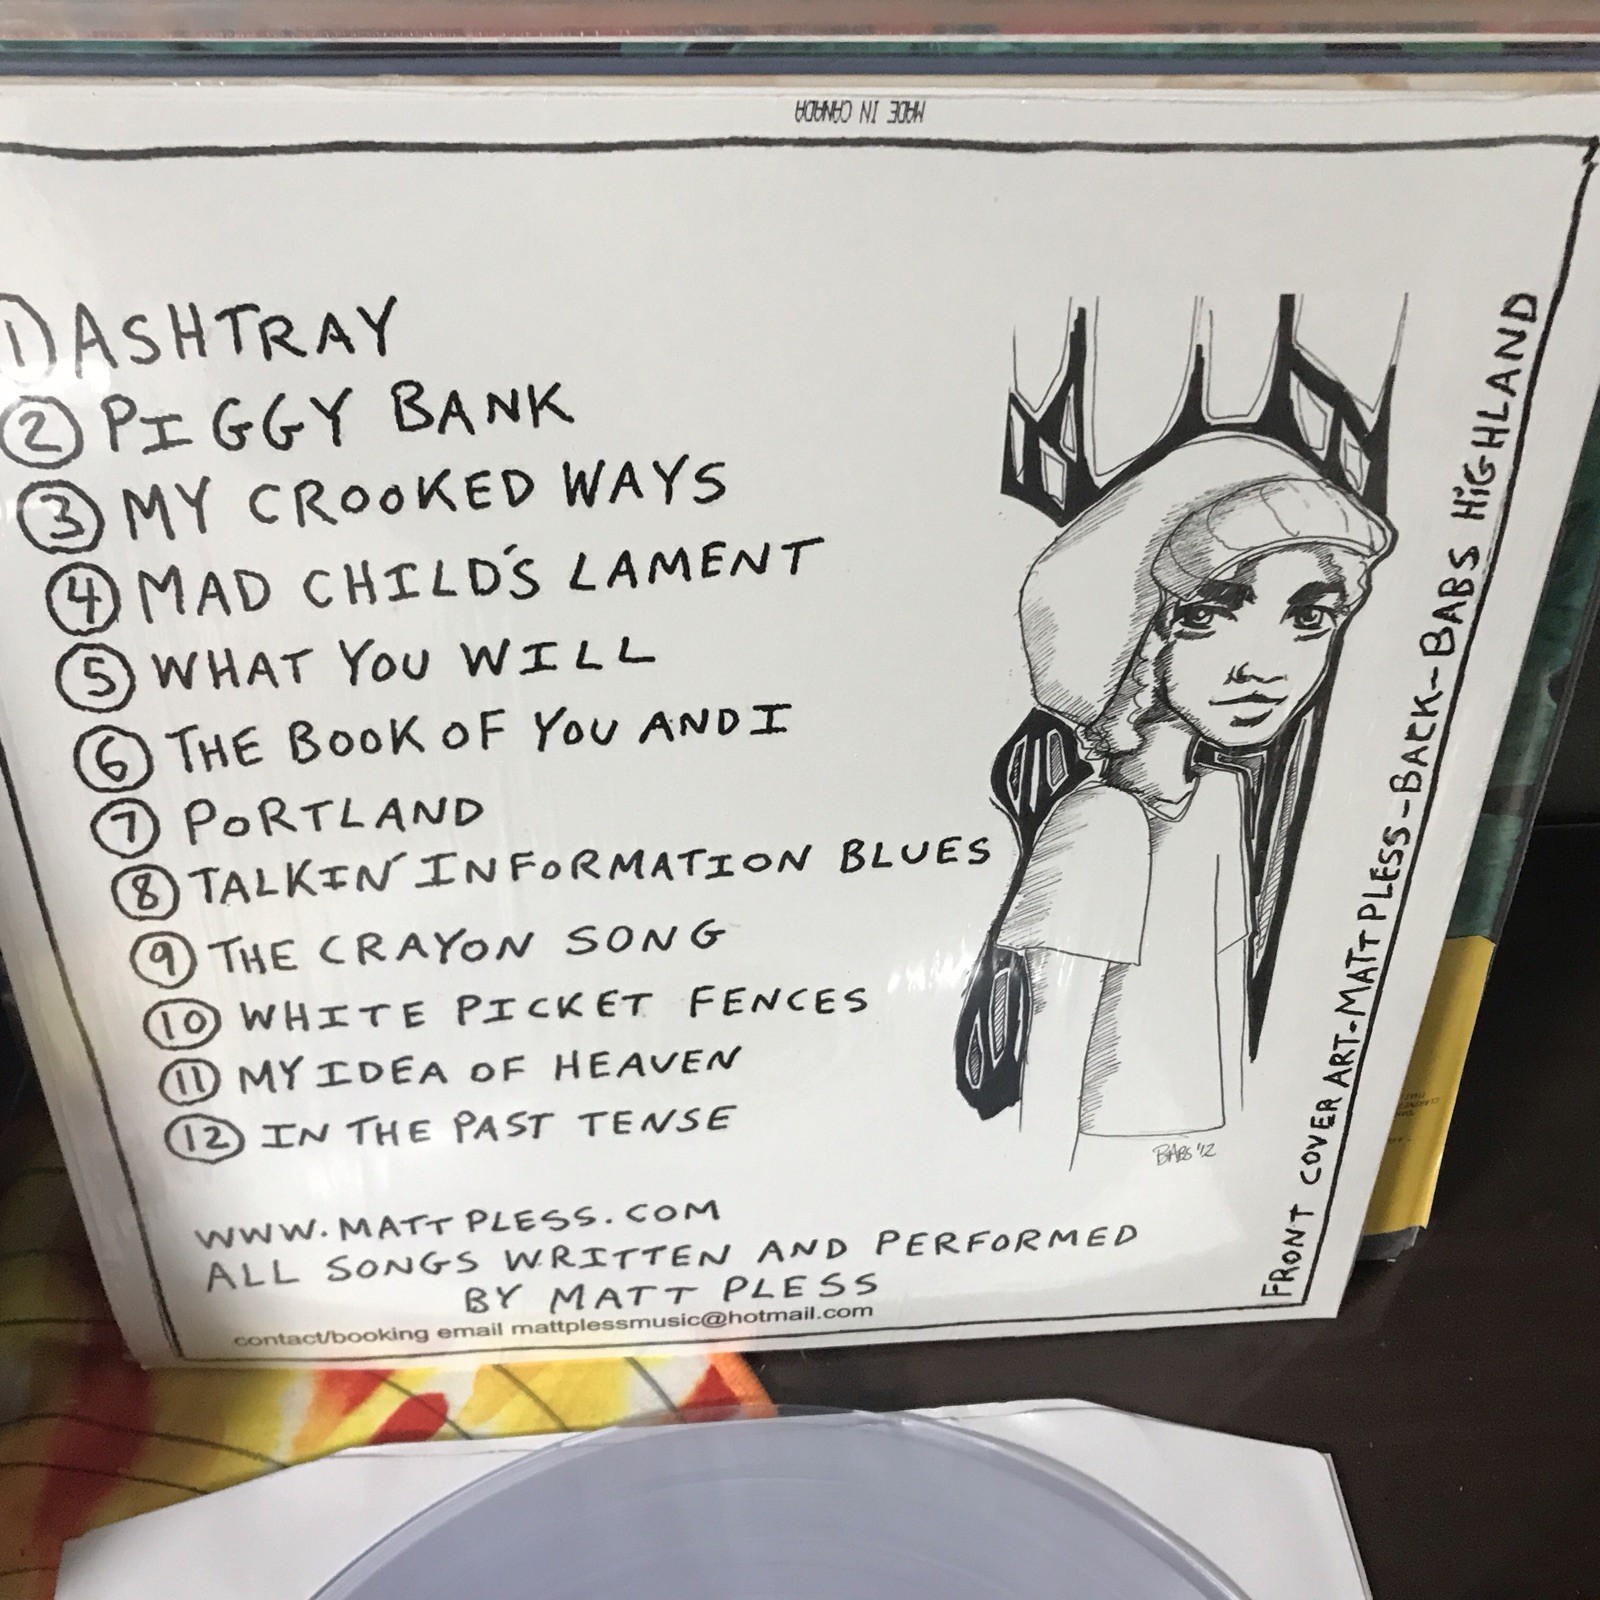 MADE IN CANADA
1 ASHTRAY
2 PIGGY BANK
3 MY CROOKED WAYS
4 MAD CHILD'S LAMENT
5 WHAT YOU WILL
6 THE BOOK OF YOU AND I
7 PORTLAND
8 TALKIN' INFORMATION BLUES
9 THE CRAYON SONG
10 WHITE PICKET FENCES
11 MY IDEA OF HEAVEN
12 IN THE PAST TENSE
BABS '12
WWW.MATTPLESS.COM
ALL SONGS WRITTEN AND PERFORMED
BY MATT PLESS
contact/booking email mattplessmusic@hotmail.com
FRONT COVER ART-MATT PLESS-BACK-BABS HIGHLAND